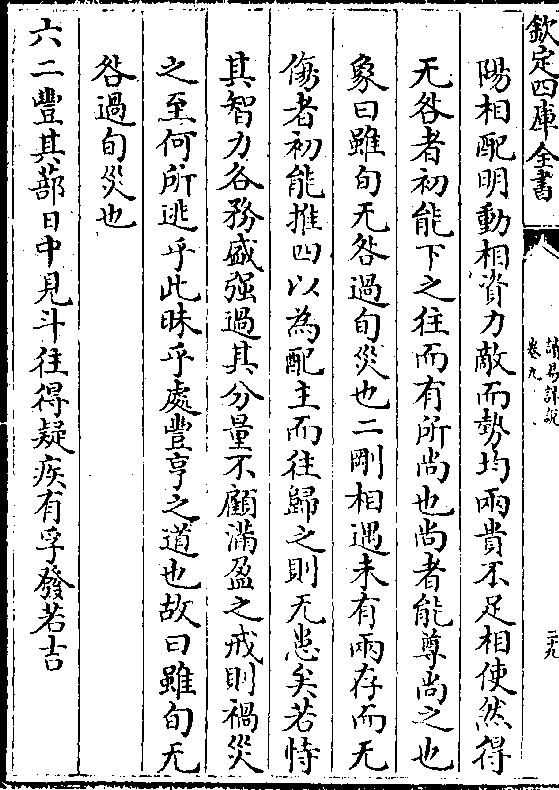 欽定四庫全書
讀易詳說
卷九
二十九
陽相配明動相資力敵而勢均兩貴不足相使然得
无咎者初能下之往而有所尚也尚者能尊尚之也
象曰雖旬无咎過旬災也二剛相遇未有兩存而无
傷者初能推四以為配主而往歸之則无患矣若恃
其智力各務盛强過其分量不顧滿盈之戒則禍災
之至何所逃乎此昧乎處豐亨之道也故曰雖旬无
咎過旬災也
六二豐其蔀日中見斗往得疑疾有孚發若吉